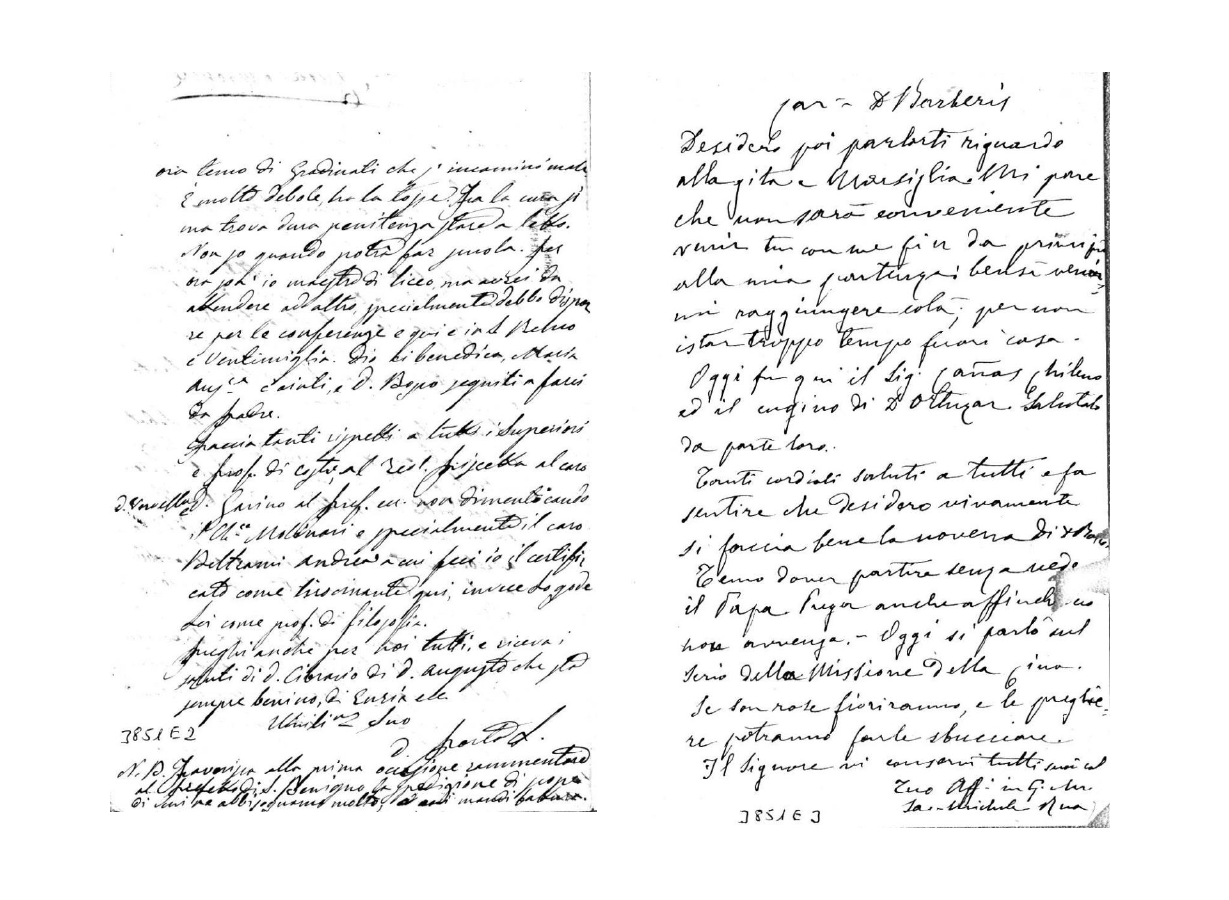 ora temo di Gradinati che s' incammini male
È molto debole, ha la tosse. Fa la cura sì
ma trova dura penitenza stare a letto.
Non so quando potrà far scuola. Per
ora fo io maestro di liceo, ma avrei da
attendere ad altro, specialmente debbo dispor
re per le conferenze e qui e in S. Remo
e Ventimiglia. Dio ci benedica, Maria
Aus.ca ci aiuti, e D. Bosco seguiti a farci
da padre.
Faccia tanti rispetti a tutti i Superiori
e prof. di costì, al Teol. al caro
D. Varvello D. Garino al Prof. non dimenticando
il Ch.co Molinari e specialmente il caro
Beltrami Andrea a cui feci io il certifi
cato come qui, invece lo gode
Lei come prof. di filosofia.
Preghi anche per noi tutti, e riceva i
saluti di D. Cibrario di D. Augusto che sta
sempre benino, di Enria ecc
Umili.mo Suo
D.
3851 E 2
N. B. Favorisca alla prima occasione rammentare
al Prefetto di S. Benigno la spedizione di
di cui ne abbisognamo molto, ed anzi mandi
car. D Barberis
Desidero poi parlarti riguardo
alla gita a Marsiglia. Mi pare
che non sarà conveniente
venir tu con me fin da principio
alla mia partenza; bensì venir
mi raggiungere colà, per non
istar troppo tempo fuori casa.
Oggi fu qui il Sig. Cañas Chileno
ed il cugino di D Ortuzar. Salutalo
da parte loro.
Tanti cordiali saluti a tutti e fa
sentire che desidero vivamente
si faccia bene la novena di
Temo dover partire senza vede
il Papa. Prega anche affinché ciò
non avvenga. - Oggi si parlò sul
serio della Missione della Cina.
Se son rose fioriranno, e le preghie=
re potranno farle sbucciare.
Il Signore vi conservi tutti suoi ed
Tuo Aff. in G. e M.
Sac. Michele Rua
3851 E 3